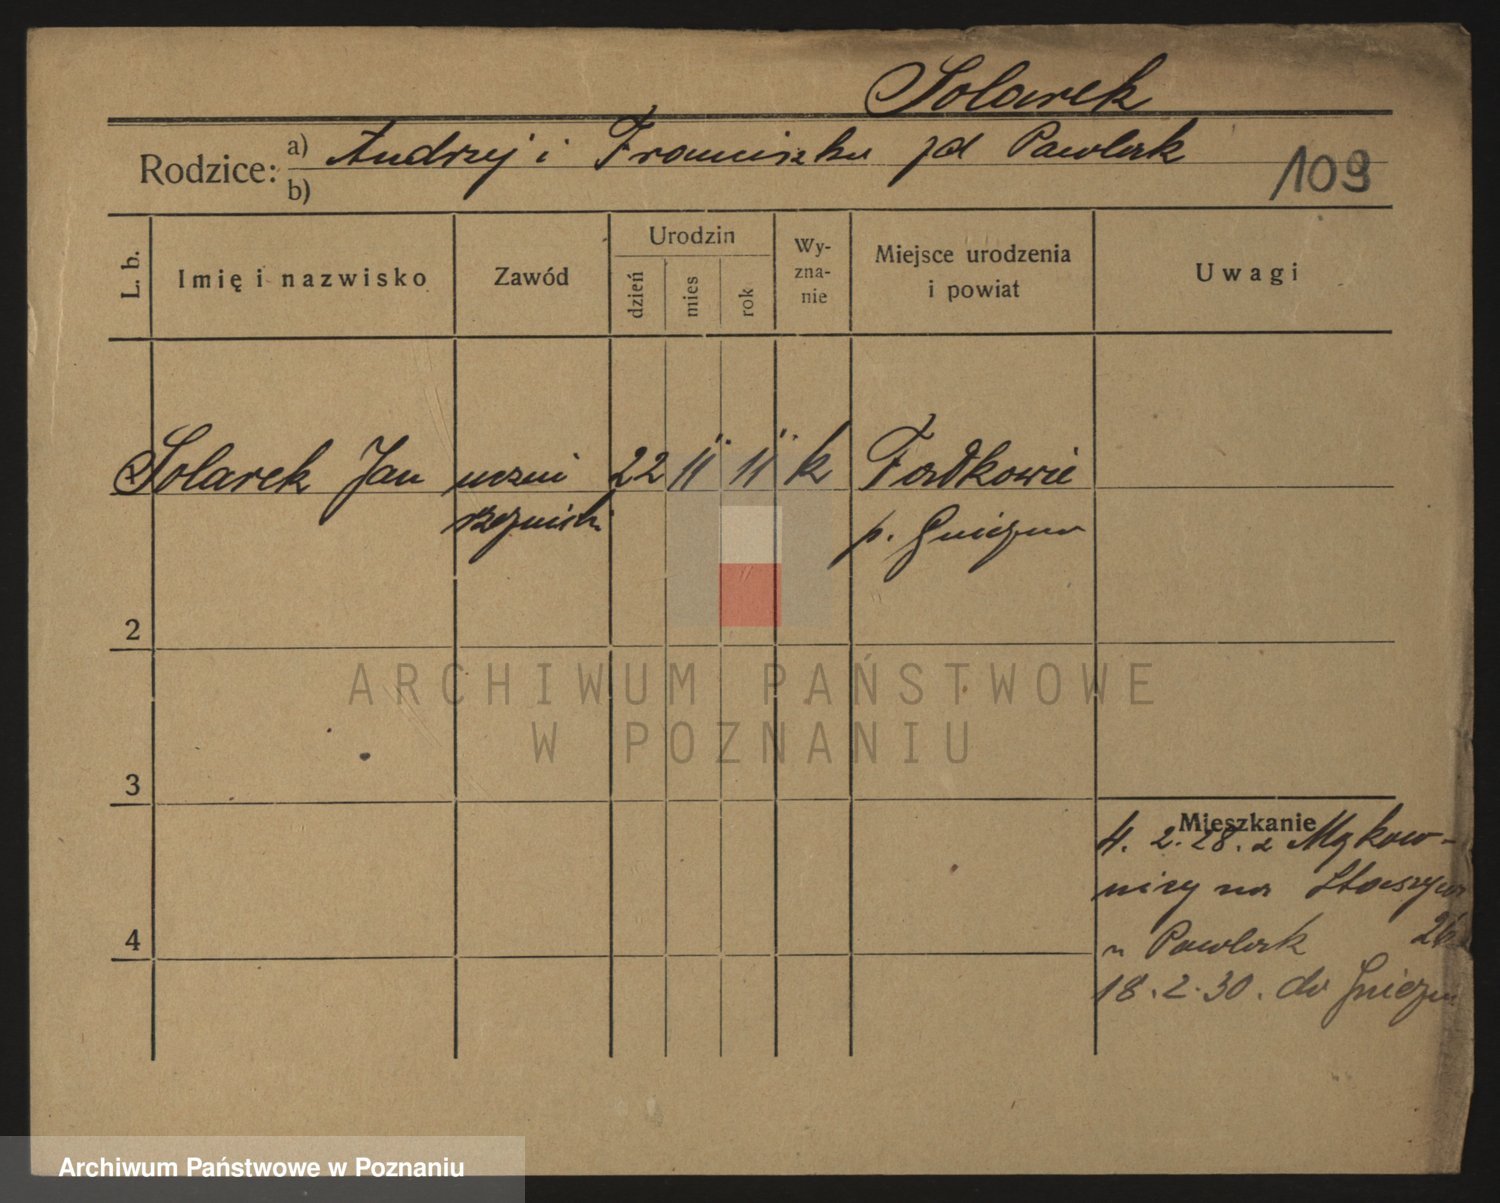 Solarek
Rodzice: a) Andrzej i Franciszka zd Pawlak
b)
109
L. b. Imię i nazwisko Zawód Urodzin dzień mies rok Wy-zna-nie Miejsce urodzenia i powiat Uwagi
Solarek Jan uczni 22 11 11 k
rzeźnicki p. Gniezno
2
3
Mieszkanie
4. 2. 28. z Mąkow-
nicy na Staszyca
4
u Pawlak 26
18. 2. 30. do Gniezna
ARCHIWUM PAŃSTWOWE
W POZNANIU
Archiwum Państwowe w Poznaniu